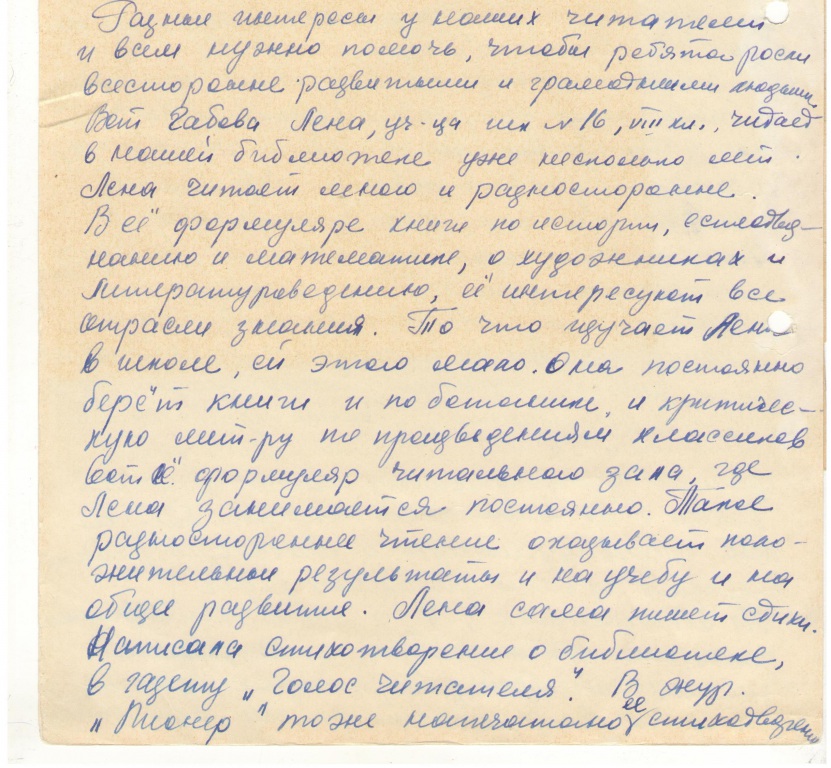 Разные интересы у наших читателей
и всем нужно помочь, чтобы ребята росли
всесторонне развитыми и грамотными людьми.
Вот Габова Лена, уч-ца шк № 16, VIII кл., читает
в нашей библиотеке уже несколько лет.
Лена читает много и разносторонне.
В её формуляре книги по истории, естествоз-
нанию и математике, о художниках и
литературоведению, её интересуют все
отрасли знания. То что изучает Лена
в школе, ей этого мало. Она постоянно
берёт книги и по ботанике, и критичес-
кую лит-ру по произведениям классиков
вот её формуляр читального зала, где
Лена занимается постоянно. Такое
разностороннее чтение оказывает поло-
жительные результаты и на учебу и на
общее развитие. Лена сама пишет стихи.
Написала стихотворение о библиотеке,
в газету „Голос читателя". В жур.
„Пионер" тоже напечатано её стихотворение